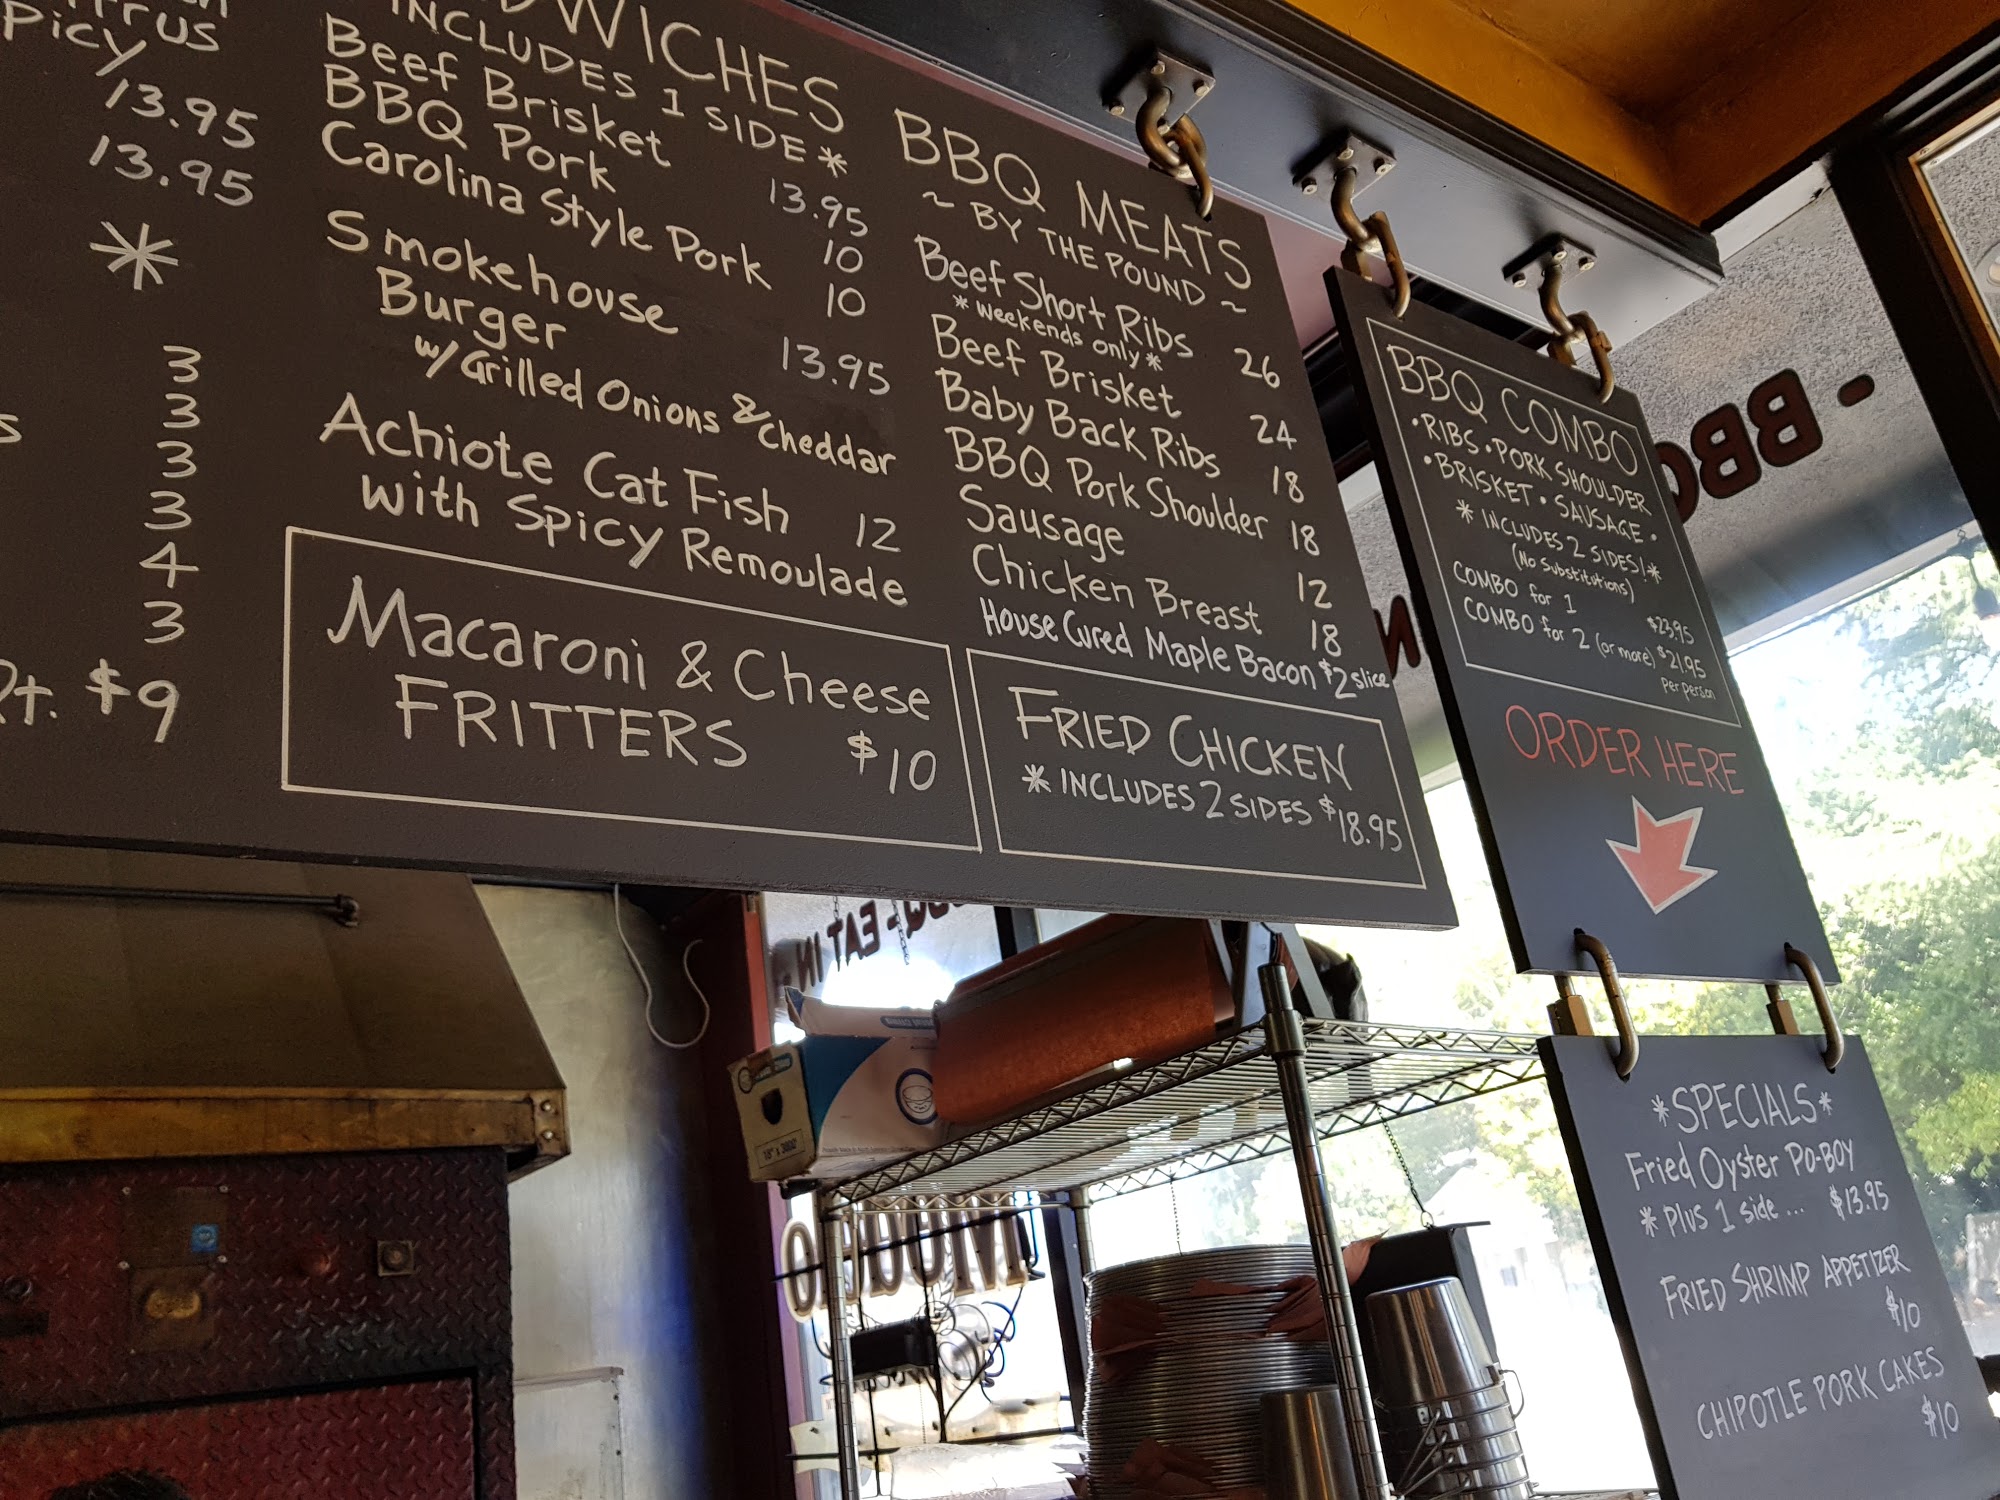 rus
Picy
13.95
13.95
*
3
3
3
3
4
3
Pt. $9
DWICHES
INCLUDES 1 SIDE *
Beef Brisket 13.95
BBQ Pork 10
Carolina Style Pork 10
Smokehouse
Burger 13.95
w/Grilled Onions & Cheddar
Achiote Cat Fish 12
with Spicy Remoulade
Macaroni & Cheese
FRITTERS $10
BBQ MEATS
~ BY THE POUND ~
Beef Short Ribs 26
* weekends only *
Beef Brisket 24
Baby Back Ribs 18
BBQ Pork Shoulder 18
Sausage 12
Chicken Breast 18
House Cured Maple Bacon $2 slice
FRIED CHICKEN
* INCLUDES 2 SIDES $18.95
BBQ COMBO
• RIBS • PORK SHOULDER
• BRISKET • SAUSAGE •
* INCLUDES 2 SIDES! *
(No Substitutions)
COMBO for 1 $23.95
COMBO for 2 (or more) $21.95
per person
ORDER HERE
*SPECIALS*
Fried Oyster Po-Boy
* Plus 1 side ... $13.95
FRIED SHRIMP APPETIZER
$10
CHIPOTLE PORK CAKES
$10
- BBQ
BBQ - EAT IN -
MUCHO